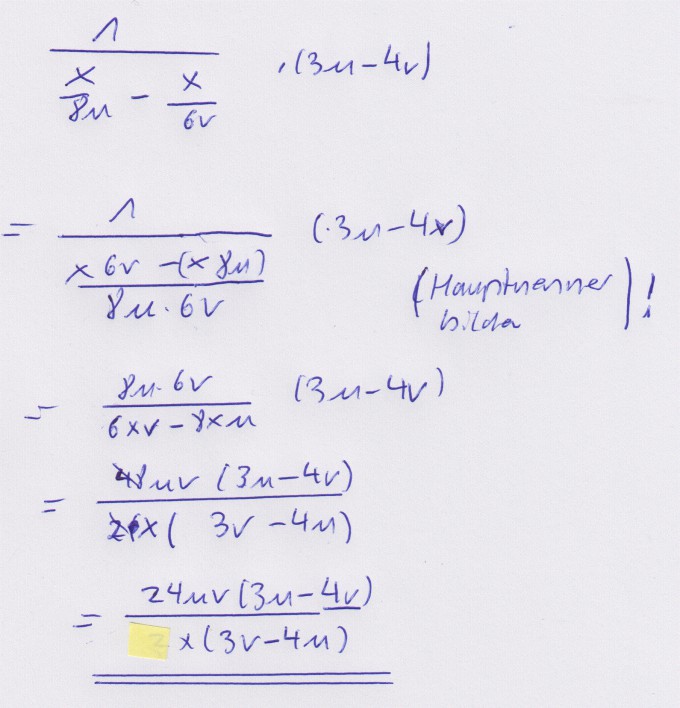 1 / (x/8u - x/6v) · (3u-4v)
= 1 / ((x 6v -(x 8u)) / (8u·6v)) (·3u-4v)
(Hauptnenner
bilden)!
= (8u·6v) / (6xv-8xu) (3u-4v)
= 48uv (3u-4v) / 2x( 3v-4u)
= 24uv(3u-4v) / x(3v-4u)